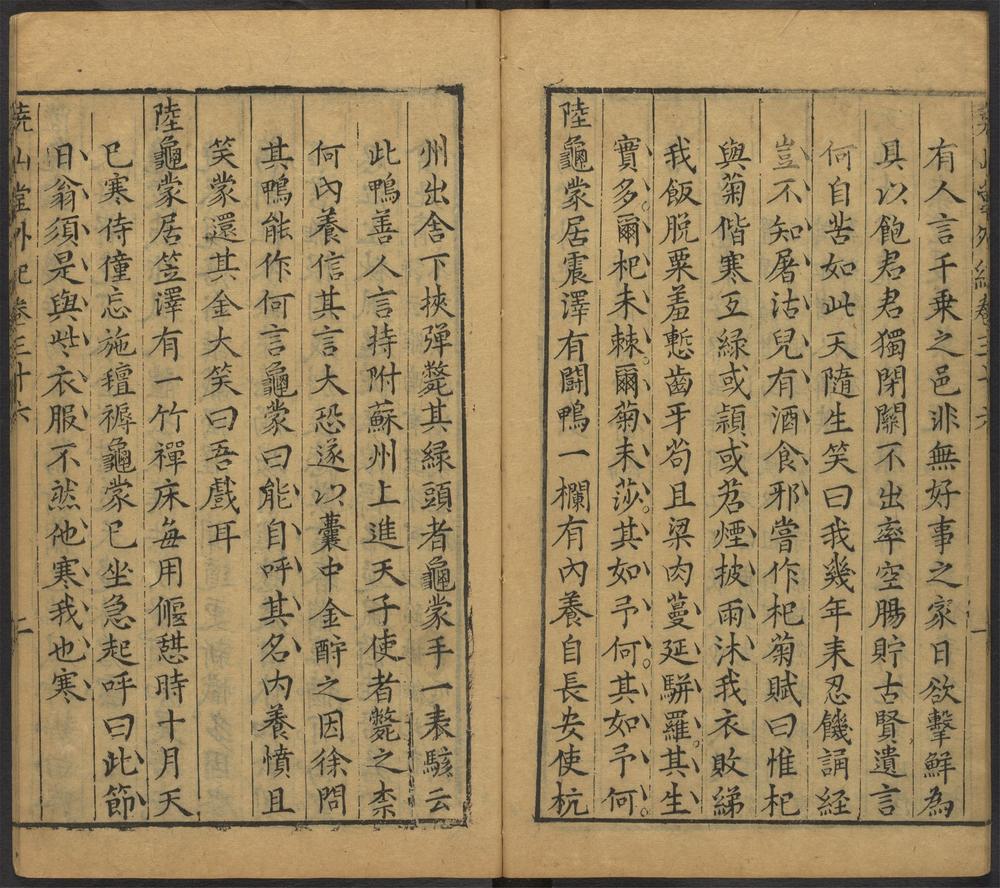 有人言千乗之邑非無好事之家日欲擊鮮為
具以飽君君獨閉關不出率空腸貯古賢遺言
何自苦如此天隨生笑曰我幾年来忍饑誦経
豈不知屠沽兒有酒食邪嘗作杞菊賦曰惟杞
與菊偕寒互緑或頴或苕煙披雨沐我衣敗綈
我飯脱粟羞慙齒牙茍且梁肉蔓延駢羅其生
實多爾杞未棘爾菊未莎其如予何其如予何
陸龜蒙居震澤有鬪鴨一欄有內養自長安使杭
州出舍下挾彈斃其緑頭者龜蒙手一表駭云
此鴨善人言持附蘇州上進天子使者斃之柰
何內養信其言大恐遂以囊中金酧之因徐問
其鴨能作何言龜蒙曰能自呼其名內養憤且
笑蒙還其金大笑曰吾戲耳
陸龜蒙居笠澤有一竹禪床每用偃憇時十月天
已寒侍僮忘施氊褥龜蒙已坐急起呼曰此節
日翁須是與些衣服不然他寒我也寒
堯山堂外紀卷三十六 二